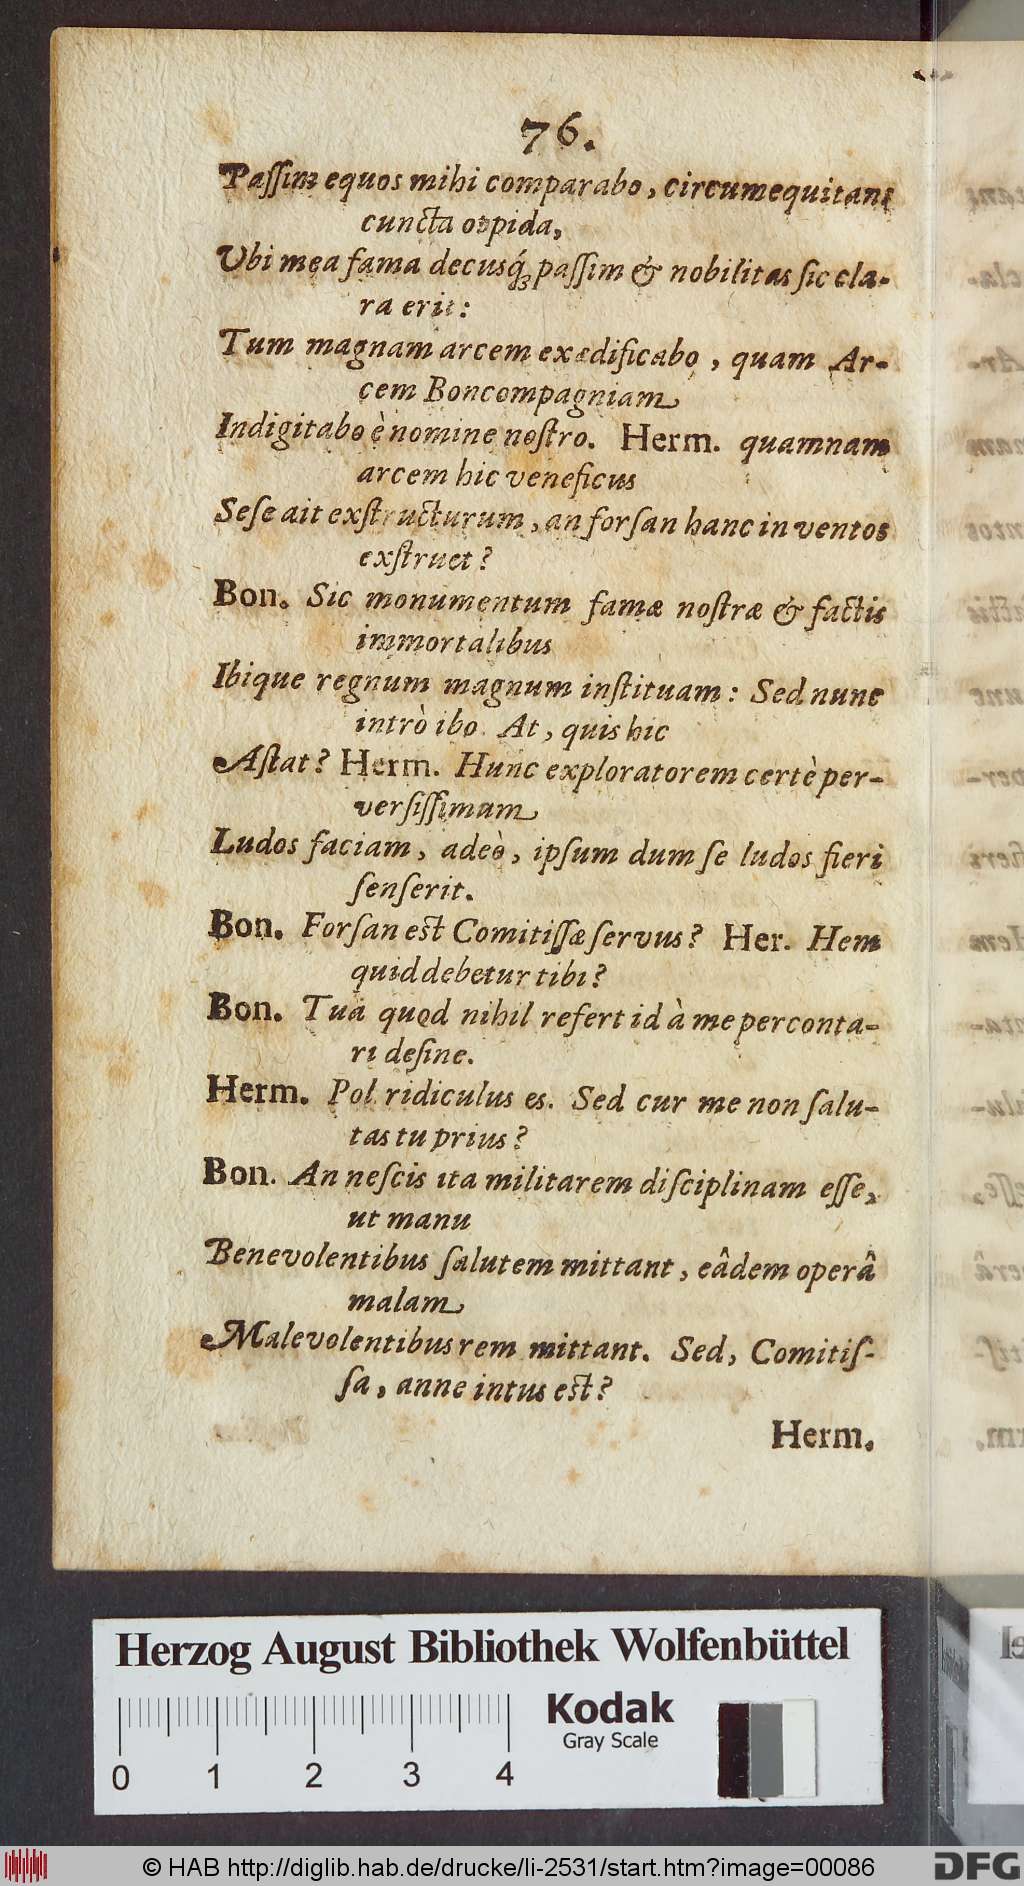 76.
Paſſim equos mihi comparabo, circumequitans
cuncta oppida,
Ubi mea fama decusq́ꝫ paſſim & nobilitas ſic cla-
ra erit:
Tum magnam arcem exædificabo, quam Ar-
cem Boncompagniam
Indigitabo è nomine noſtro. Herm. quamnam
arcem hic veneficus
Seſe ait exſtructurum, an forſan hanc in ventos
exſtruet?
Bon. Sic monumentum famæ noſtræ & factis
immortalibus
Ibique regnum magnum inſtituam: Sed nunc
intrò ibo. At, quis hic
Aſtat? Herm. Hunc exploratorem certè per-
verſiſſimum
Ludos faciam, adeò, ipſum dum ſe ludos fieri
ſenſerit.
Bon. Forſan eſt Comitiſſæ ſervus? Her. Hem
quid debetur tibi?
Bon. Tuâ quod nihil refert id à me perconta-
ri deſine.
Herm. Pol ridiculus es. Sed cur me non ſalu-
tas tu prius?
Bon. An neſcis ita militarem diſciplinam eſſe,
ut manu
Benevolentibus ſalutem mittant, eâdem operâ
malam
Malevolentibus rem mittant. Sed, Comitiſ-
ſa, anne intus eſt?
Herm.
Herzog August Bibliothek Wolfenbüttel
Kodak
Gray Scale
0 1 2 3 4
© HAB http://diglib.hab.de/drucke/li-2531/start.htm?image=00086
DFG